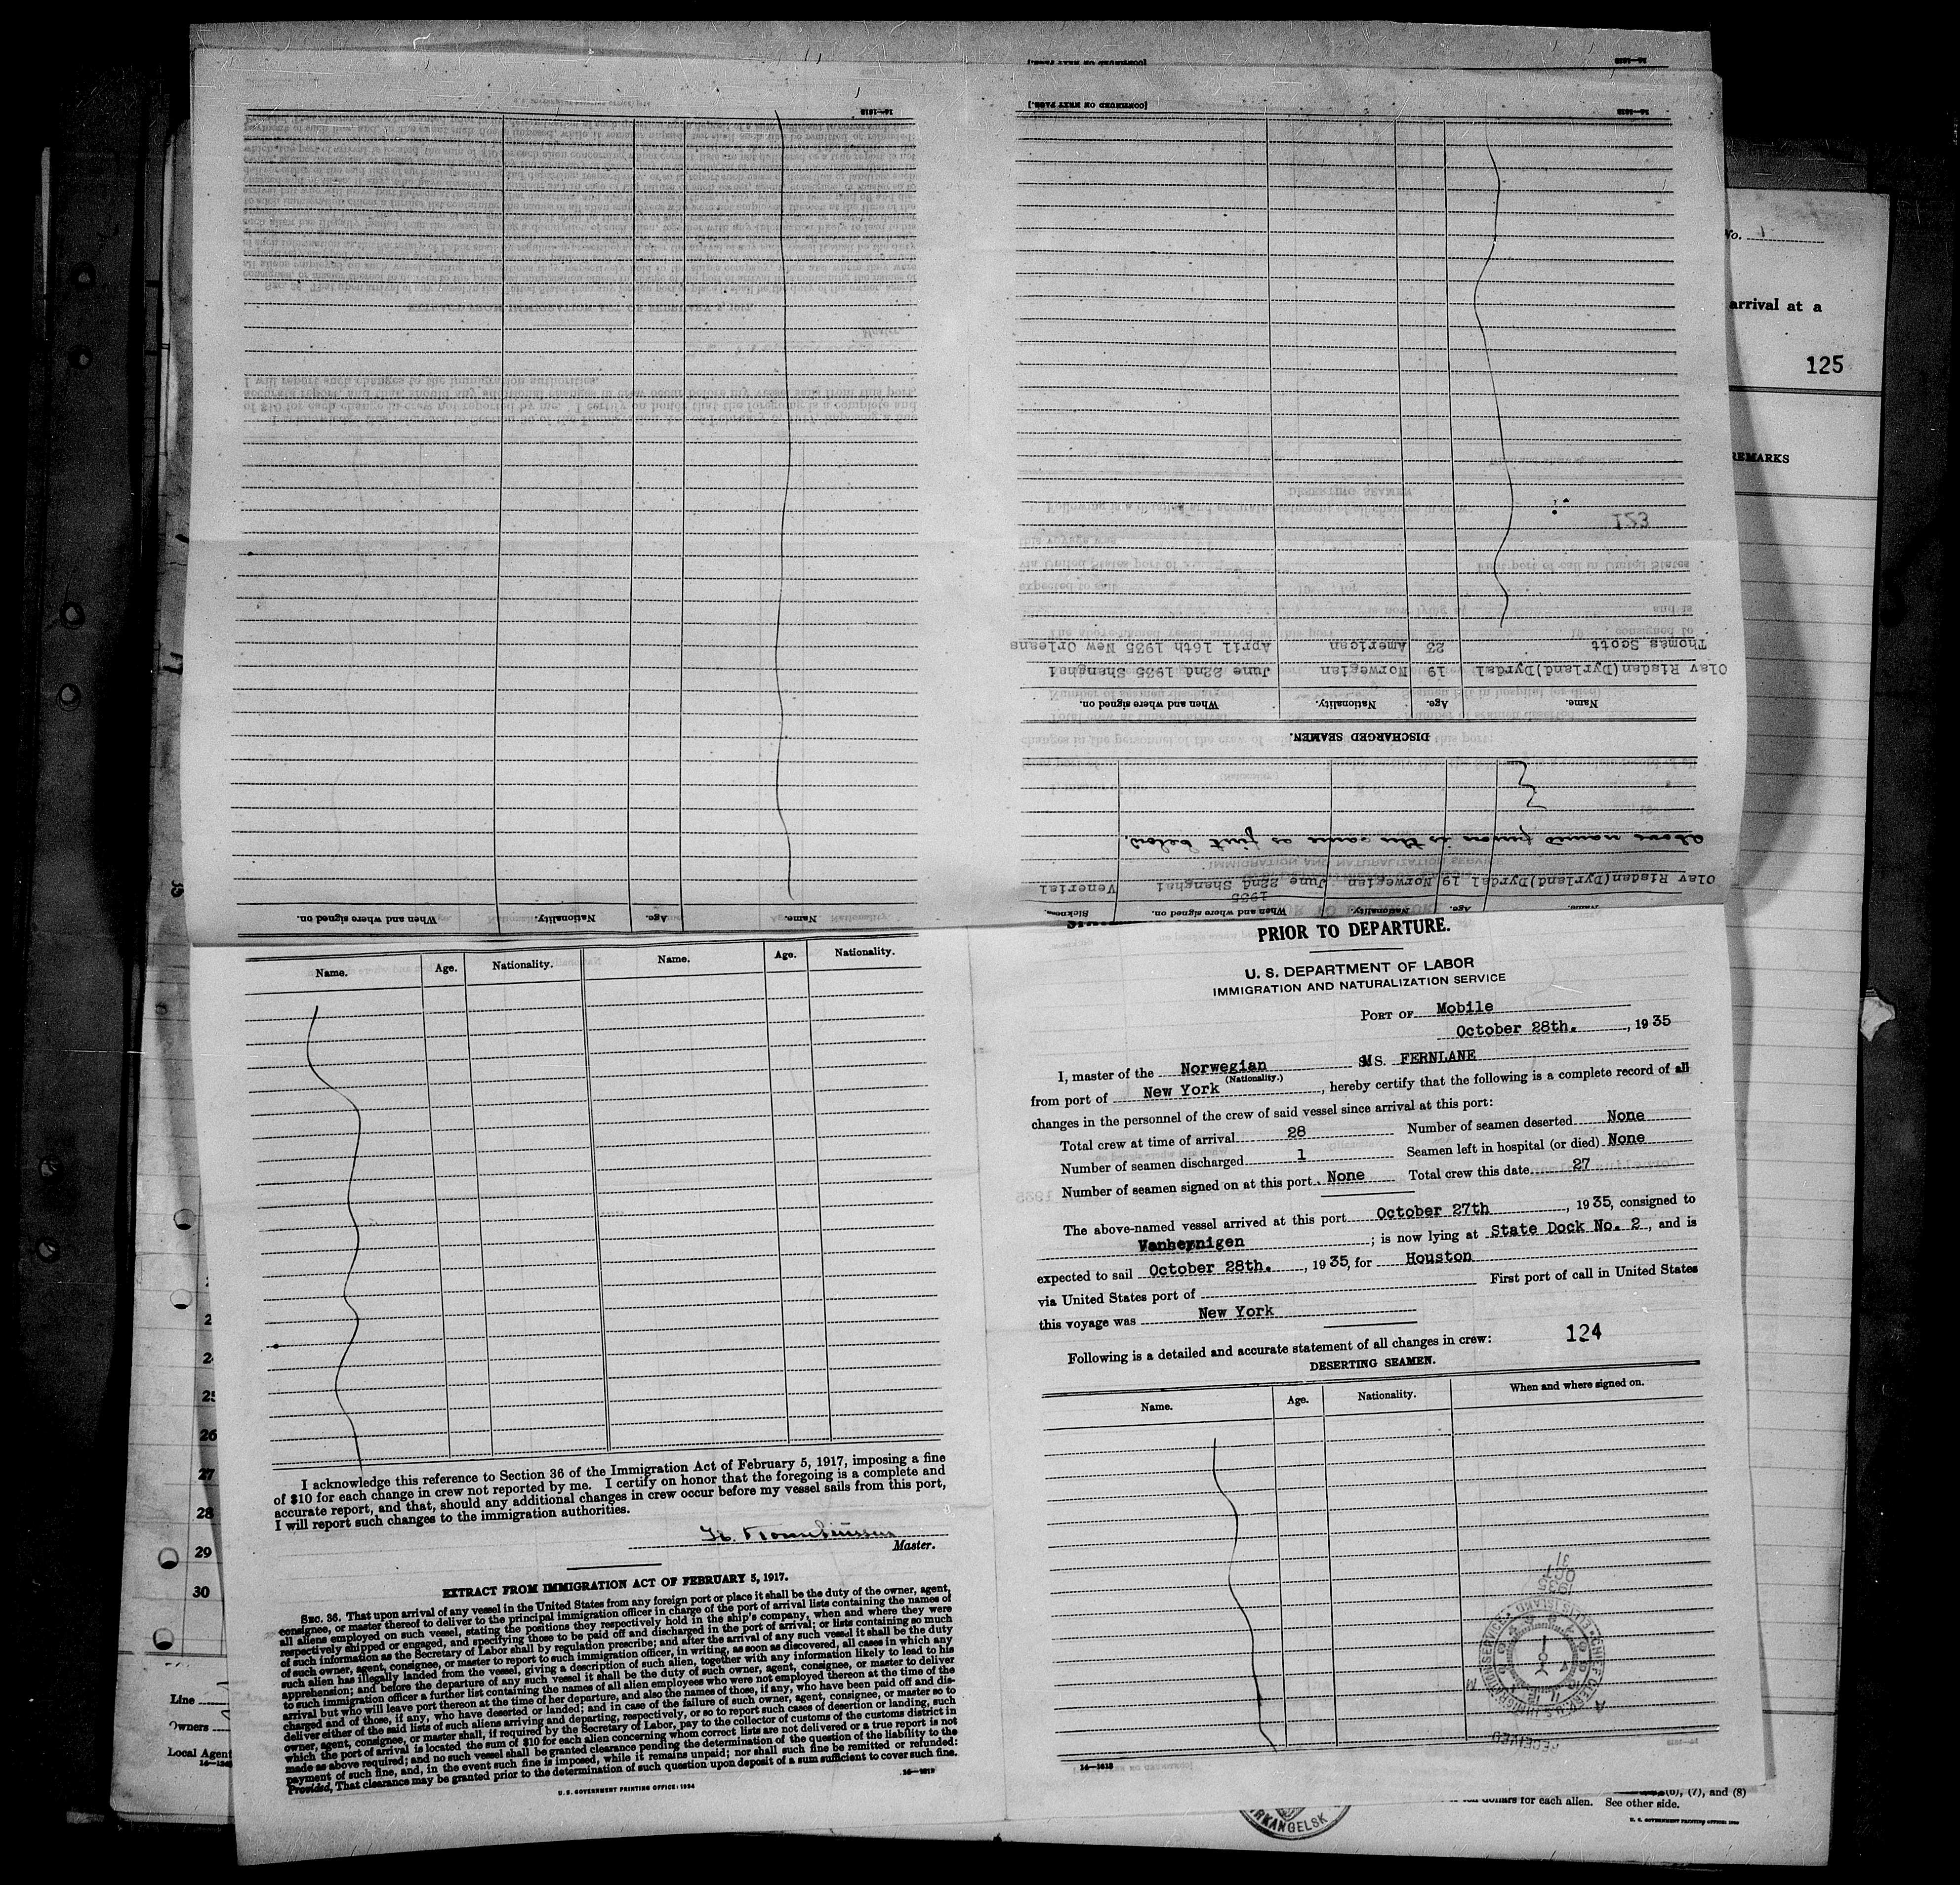 [CONTINUED ON NEXT PAGE.]
16—1613
[CONTINUED ON NEXT PAGE.]
16—1613
No.
arrival at a
125
REMARKS
123
Thomas Scott 23 American April 16th 1935 New Orleans
Olav Risdan(Dyrland)Dyrdal 19 Norwegian June 22nd 1935 Shanghai
Name. Age. Nationality. When and where signed on.
DISCHARGED SEAMEN.
above named person is the same as first below.
Olav Risdan(Dyrland)Dyrdal 19 Norwegian June 22nd Shanghai Venerial
1935
Name. Age. Nationality. When and where signed on. Sickness.
Name. Age. Nationality. When and where signed on.
Name. Age. Nationality. Name. Age. Nationality.
I acknowledge this reference to Section 36 of the Immigration Act of February 5, 1917, imposing a fine
of $10 for each change in crew not reported by me. I certify on honor that the foregoing is a complete and
accurate report, and that, should any additional changes in crew occur before my vessel sails from this port,
I will report such changes to the immigration authorities.
Master.
EXTRACT FROM IMMIGRATION ACT OF FEBRUARY 5, 1917.
SEC. 36. That upon arrival of any vessel in the United States from any foreign port or place it shall be the duty of the owner, agent,
consignee, or master thereof to deliver to the principal immigration officer in charge of the port of arrival lists containing the names of
all aliens employed on such vessel, stating the positions they respectively hold in the ship's company, when and where they were
respectively shipped or engaged, and specifying those to be paid off and discharged in the port of arrival; or lists containing so much
of such information as the Secretary of Labor shall by regulation prescribe; and after the arrival of any such vessel it shall be the duty
of such owner, agent, consignee, or master to report to such immigration officer, in writing, as soon as discovered, all cases in which any
such alien has illegally landed from the vessel, giving a description of such alien, together with any information likely to lead to his
apprehension; and before the departure of any such vessel it shall be the duty of such owner, agent, consignee, or master to deliver
to such immigration officer a further list containing the names of all alien employees who were not employed thereon at the time of the
arrival but who will leave port thereon at the time of her departure, and also the names of those, if any, who have been paid off and dis-
charged and of those, if any, who have deserted or landed; and in case of the failure of such owner, agent, consignee, or master so to
deliver either of the said lists of such aliens arriving and departing, respectively, or so to report such cases of desertion or landing, such
owner, agent, consignee, or master shall, if required by the Secretary of Labor, pay to the collector of customs of the customs district in
which the port of arrival is located the sum of $10 for each alien concerning whom correct lists are not delivered or a true report is not
made as above required; and no such vessel shall be granted clearance pending the determination of the question of the liability to the
payment of such fine, and, in the event such fine is imposed, while it remains unpaid; nor shall such fine be remitted or refunded:
Provided, That clearance may be granted prior to the determination of such question upon deposit of a sum sufficient to cover such fine.
U. S. GOVERNMENT PRINTING OFFICE: 1934
16—1613
PRIOR TO DEPARTURE.
U. S. DEPARTMENT OF LABOR
IMMIGRATION AND NATURALIZATION SERVICE
PORT OF Mobile
October 28th., 1935
I, master of the Norwegian MS. FERNLANE
(Nationality.)
from port of New York, hereby certify that the following is a complete record of all
changes in the personnel of the crew of said vessel since arrival at this port:
Total crew at time of arrival 28 Number of seamen deserted None
Number of seamen discharged 1 Seamen left in hospital (or died) None
Number of seamen signed on at this port. None Total crew this date 27
The above-named vessel arrived at this port October 27th, 1935, consigned to
Vanheynigen; is now lying at State Dock No. 2, and is
expected to sail October 28th., 1935, for Houston
via United States port of First port of call in United States
this voyage was New York
Following is a detailed and accurate statement of all changes in crew:
124
DESERTING SEAMEN.
Name. Age. Nationality. When and where signed on.
RECEIVED
1935
OCT
31
16—1613
24
25
26
27
28
29
30
Line
Owners
Local Agent
(6), (7), and (8)
ten dollars for each alien. See other side.
ARKANGELSK